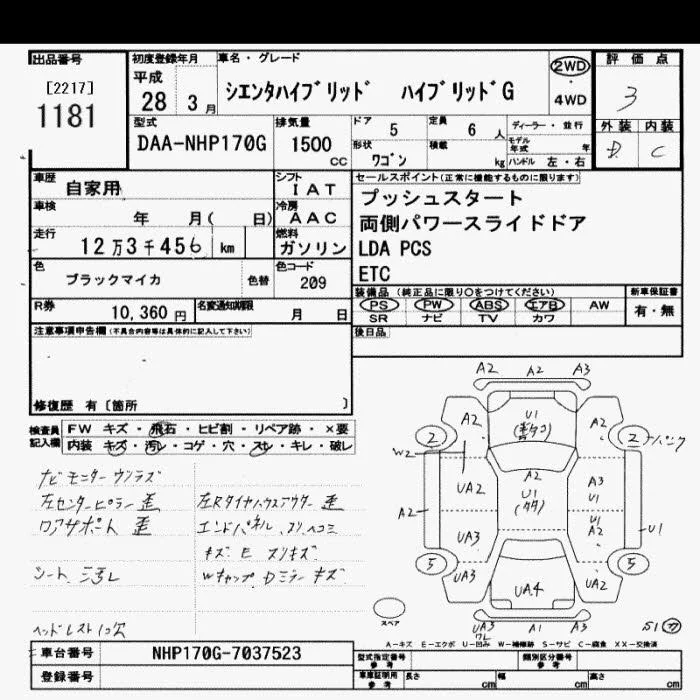 出品番号
[2217]
1181
初度登録年月
平成
28 3月
車名・グレード
シエンタハイブリッド ハイブリッドG
2WD
4WD
評価点
3
外装 内装
D C
型式
DAA-NHP170G
排気量
1500
cc
ドア 5
定員 6 人
形状 ワゴン
積載 kg
ディーラー・並行
モデル年式 年
ハンドル 左・右
車歴 自家用
シフト
IAT
車検
年 月( 日)
冷房
AAC
走行
12万3千456 km
燃料
ガソリン
色
ブラックマイカ
色替
色コード
209
R券
10,360 円
名変通知期限
月 日
セールスポイント(正常に機能するものに限ります)
プッシュスタート
両側パワースライドドア
LDA PCS
ETC
装備品(純正品に限り○をつけてください)
PS PW ABS エアB AW
SR ナビ TV カワ
新車保証書
有・無
後日品
注意事項申告欄(不具合内容等は具体的に記入して下さい)
修復歴 有〔箇所 〕
検査員記入欄
FW キズ・飛石・ヒビ割・リペア跡・×要
内装 キズ・汚レ・コゲ・穴・スレ・キレ・破レ
ナビモニターウンラズ
左センターピラー歪
ロアサポート 歪
シート ニ汚レ
ヘッドレスト1コ欠
左Rタイヤハウスアウター 歪
エンドパネル スリヘコミ
キズ E スリキズ
Wキャップ Dミラー キズ
A2 A2 A3
A2
U1
A2
2
2 パンク
W2
A2
UA2
U1
A3
U1
A2
U1
A2
UA3
U1
5
5
UA3
UA4
UA2
スペア
UA3
ワレ
A1 A3
S1
A-キズ E-エクボ U-凹み W-補修跡 S-サビ C-腐食 XX-交換済
車台番号
NHP170G-7037523
登録番号
型式指定番号
参考
類別区分番号
参考
車庫証明用
参考
長さ cm
幅 cm
高さ cm